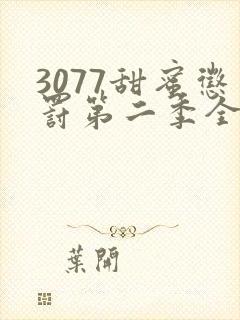 3077甜蜜懲
罰第二季全
葉開